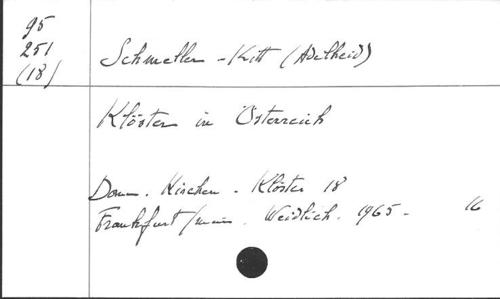 95
251
(18)
Schmeller-Kitt (Adelheid)
Klöster in Österreich
Dome. Kirchen. Klöster 18
Frankfurt/main. Weidlich. 1965. 16